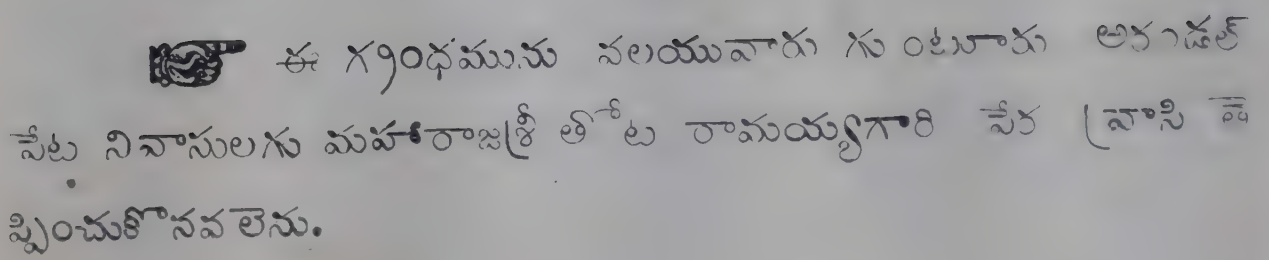 ☞ ఈ గ్రంధమును వలయువారు గుంటూరు అరండల్
పేట నివాసులగు మహారాజశ్రీ తోట రామయ్యగారి పేర వ్రాసి తె
ప్పించుకొనవలెను.